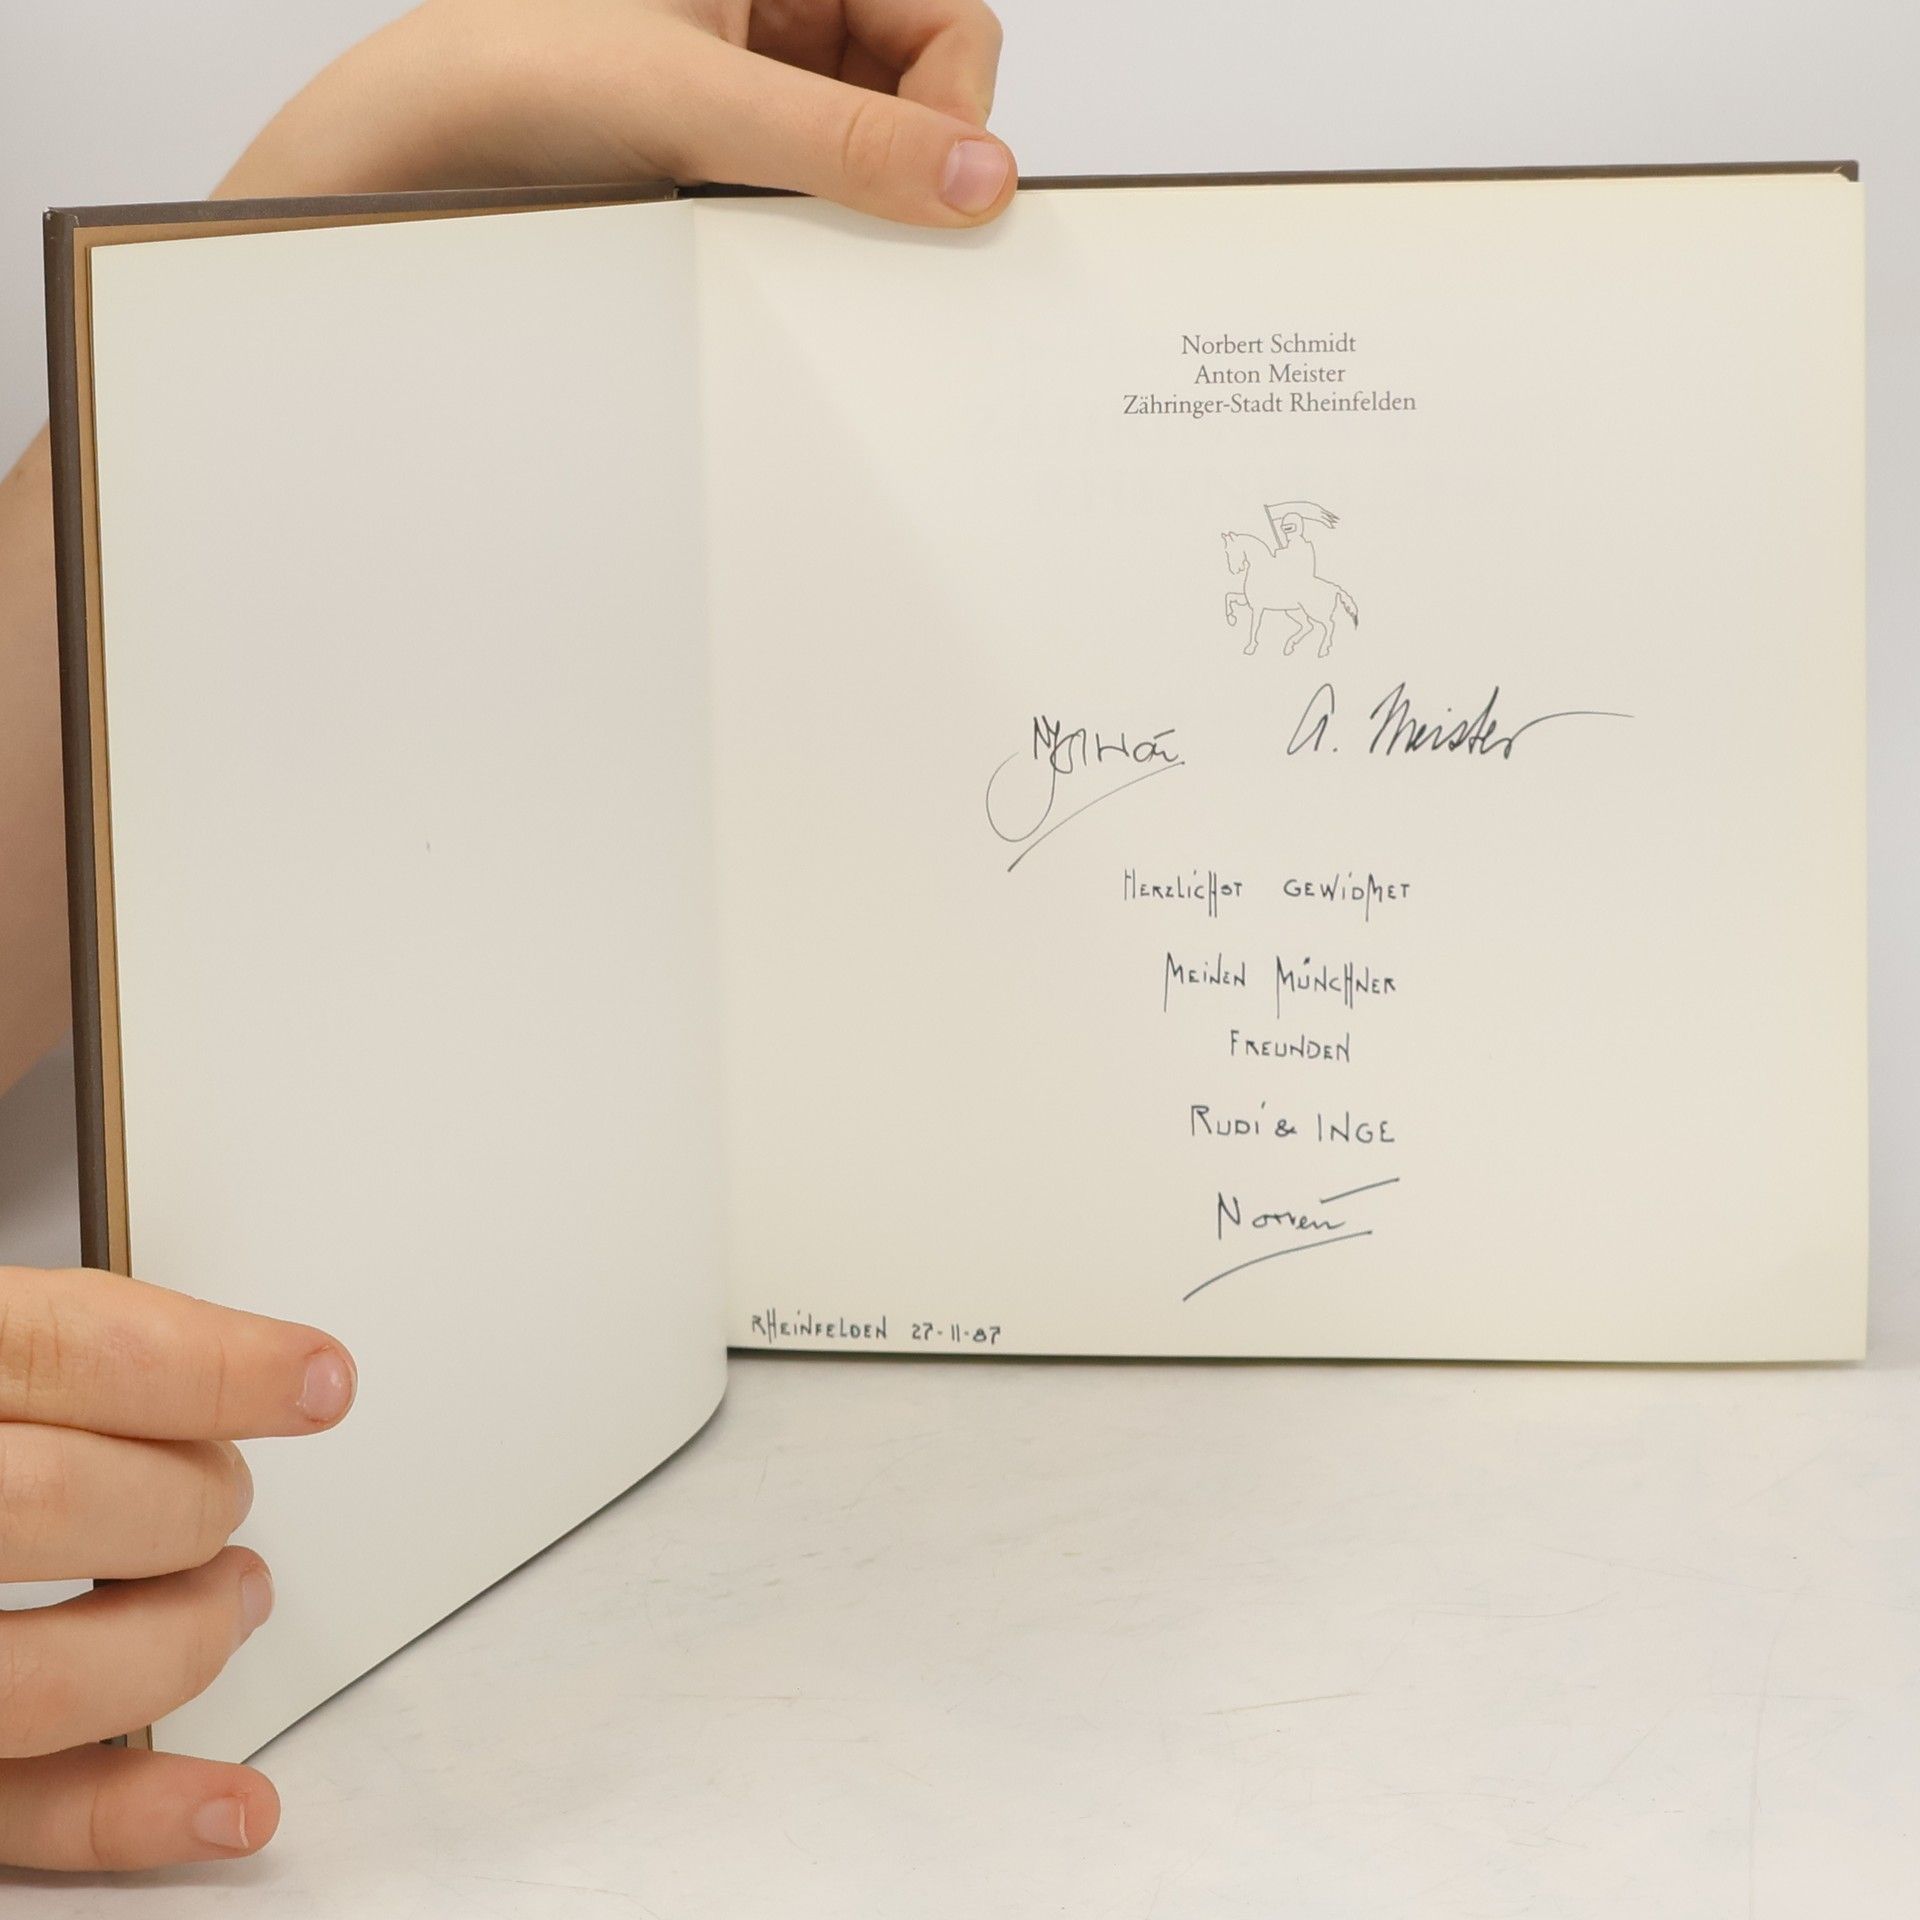 Norbert Schmidt
Anton Meister
Zähringer-Stadt Rheinfelden
A. Meister
HERZLICHST GEWIDMET
MEINEN MÜNCHNER
FREUNDEN
RUDI & INGE
RHEINFELDEN 27-11-87